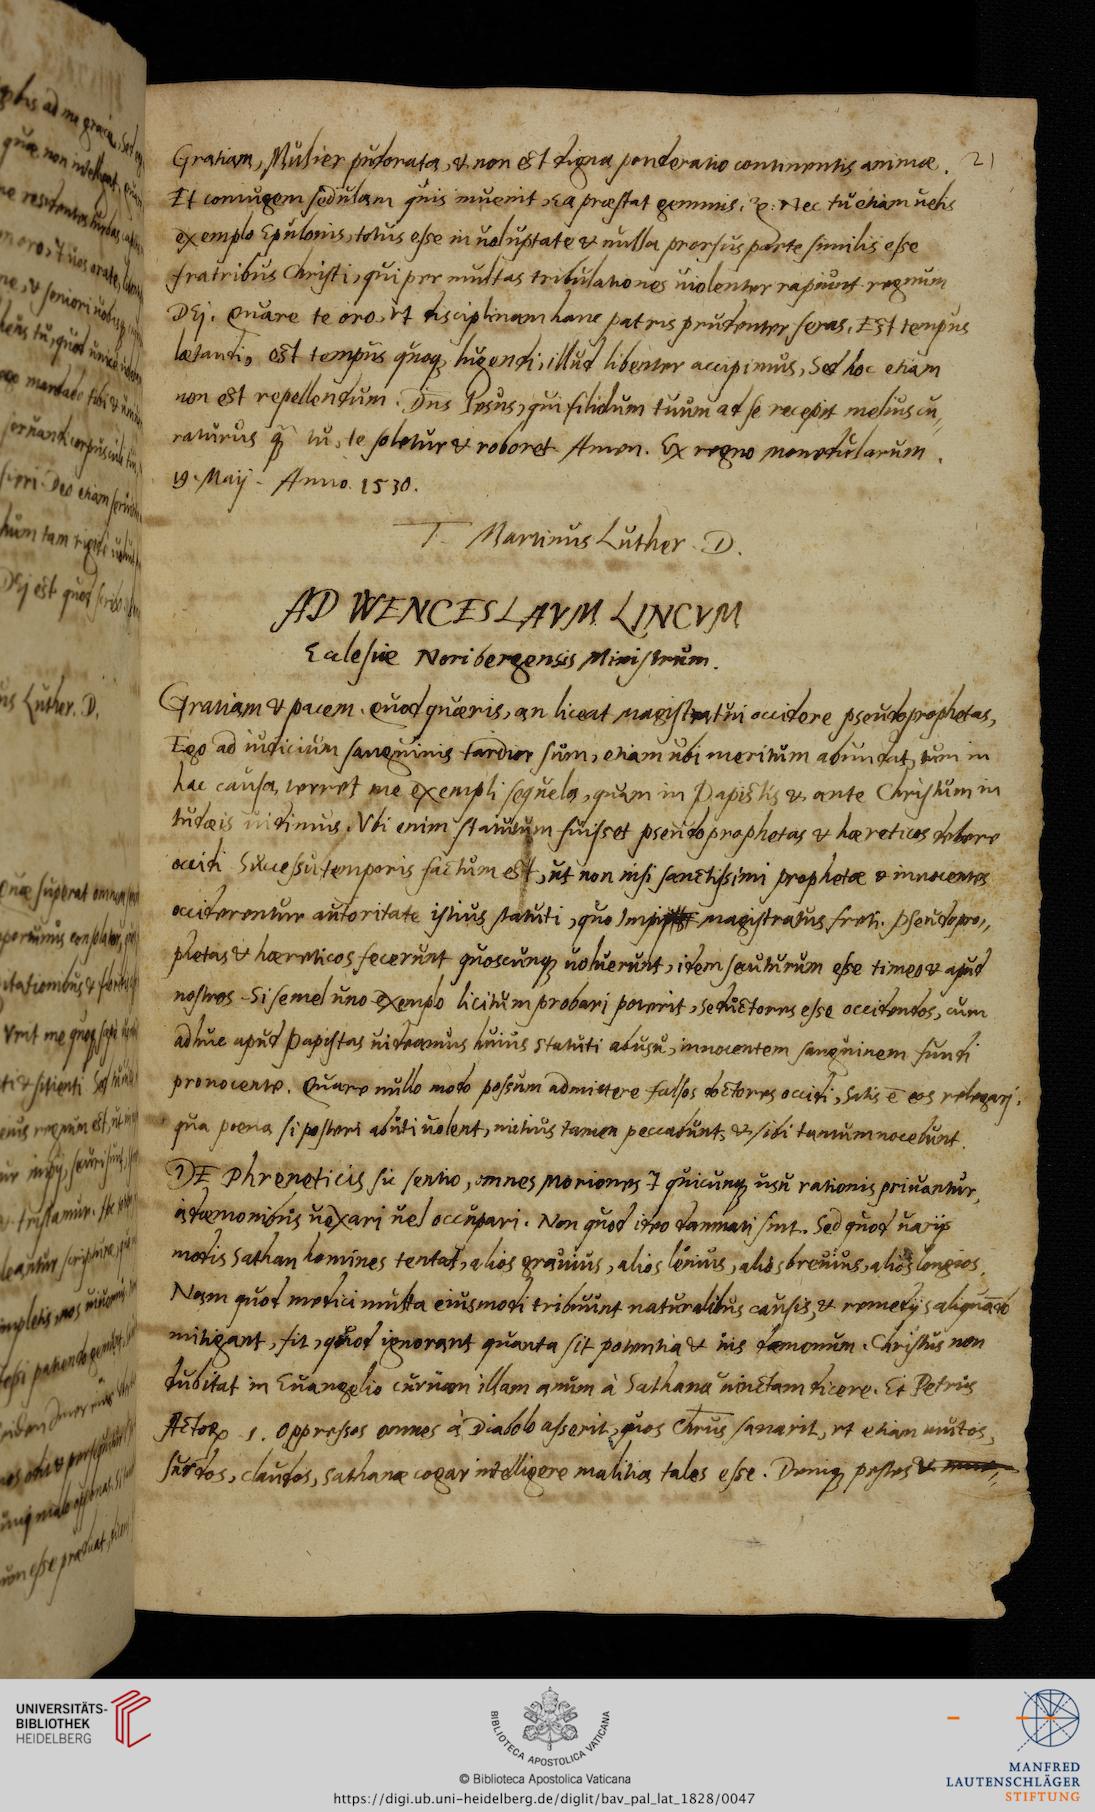 Gratiam, Mulier pudorata, & non est digna ponderatio continentis animæ. 21
Et coniugem sedulam quis inuenit, ea præstat gemmis. &c. Nec tu etiam uelis
exemplo Epulonis, totus esse in uoluptate & nulla prorsus parte similis esse
fratribus Christi, qui per multas tribulationes uiolenter rapiunt regnum
DEj. Quare te oro, ut disciplinam hanc patris prudenter feras. Est tempus
lætandi, est tempus quoq; lugendi, illud libenter accipimus, Sed hoc etiam
non est repellendum. Dns Iesus, qui filiolum tuum ad se recepit melius cu,,
raturus q̃ tu, te soletur & roboret Amen. Ex regno monedularum.
19. Maij. Anno. 1530.
T. Martinus Luther. D.
AD WENCESLAVM LINCVM
Ecclesiæ Noribergensis Ministrum.
Gratiam & pacem. Quod quæris, an liceat magistratui occidere pseudoprophetas,
Ego ad iudicium sanguinis tardior sum, etiam ubi meritum abundat, tum in
hac causa, terret me exempli sequela, quam in Papistis & ante Christum in
Iudæis uidimus. Vbi enim statutum fuisset pseudoprophetas & hæreticos debere
occidi Successu temporis factum est, ut non nisi sanctissimi prophetæ & innocentes
occiderentur autoritate istius statuti, quo Impij magistratus freti. Pseudopro,,
phetas & hæreticos fecerunt quoscunq; uoluerunt, idem secuturum esse timeo & apud
nostros. Si semel uno exemplo licitum probari poterit, seductores esse occidendos, cum
adhuc apud Papistas uideamus huius statuti abusu, innocentem sanguinem fundi
pro nocente. Quare nullo modo possum admittere falsos doctores occidi, Satis ē eos relegari.
qua poena si posteri abuti uolent, mitius tamen peccabunt, & sibi tantum nocebunt.
DE Phreneticis sic sentio, omnes Moriones & quicunq; usu rationis priuantur,
à dæmonibus uexari uel occupari. Non quod ideo damnati sint. Sed quod uarijs
modis Sathan homines tentat, alios grauius, alios lenius, alios breuius, alios longius.
Nam quod medici multa eiusmodi tribuunt naturalibus causis, & remedijs aliquando
mitigant, fit, quod ignorant quanta sit potentia & uis dæmonum. Christus non
dubitat in Euangelio curuam illam anum à Sathana uinctam dicere. Et Petrus
Actor. 1. Oppressos omnes à Diabolo asserit, quos Chrus sanarit, et etiam mutos,
surdos, claudos, sathanæ cogar intelligere malitia tales esse. Deniq; pestes
UNIVERSITÄTS-
BIBLIOTHEK
HEIDELBERG
BIBLIOTECA APOSTOLICA VATICANA
© Biblioteca Apostolica Vaticana
https://digi.ub.uni-heidelberg.de/diglit/bav_pal_lat_1828/0047
MANFRED
LAUTENSCHLÄGER
STIFTUNG